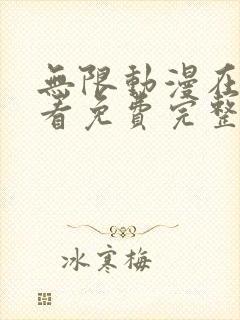 無限動漫在
看免費完整
冰寒梅